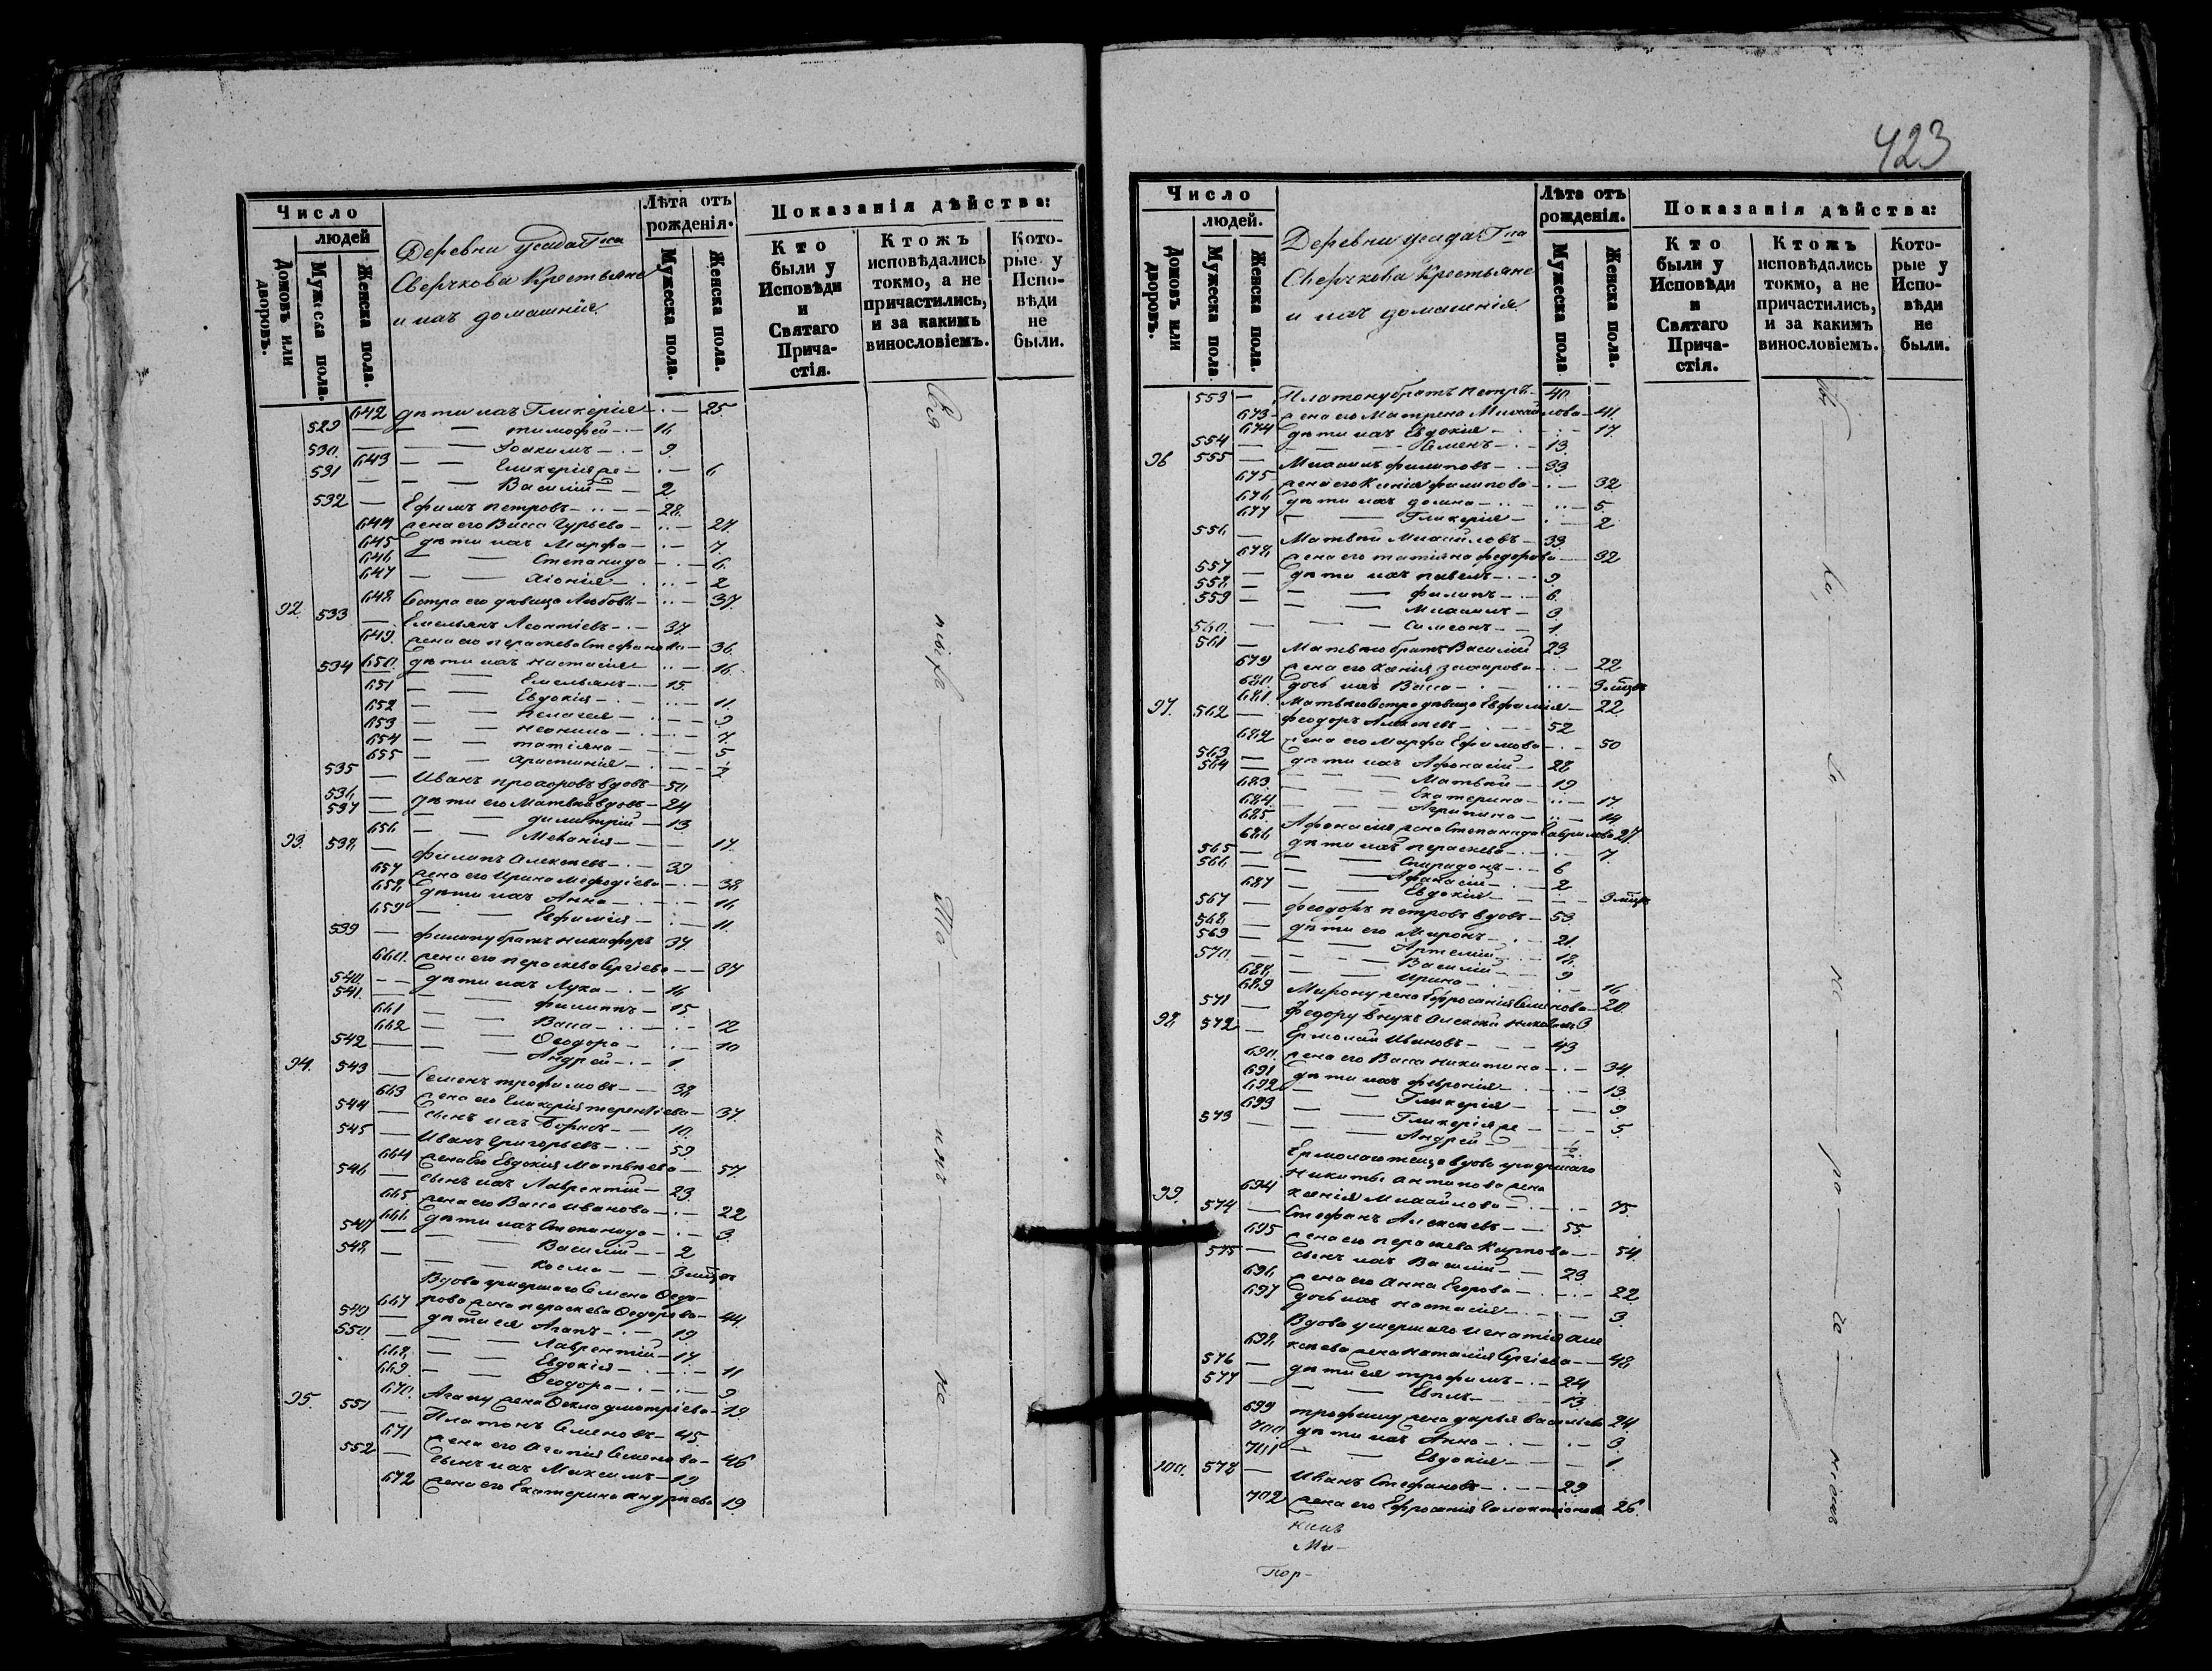 Число
людей
Домовъ или дворовъ.
Мужеска пола.
Женска пола.
Деревни усада Гна
Сверчкова Крестьяне
и ихъ домашнія.
Лѣта отъ рожденія.
Мужеска пола.
Женска пола.
Показанія дѣйства:
Кто были у Исповѣди и Святаго Причастія.
Ктожъ исповѣдались токмо, а не причастились, и за какимъ винословіемъ.
Которые у Исповѣди не были.
642 дѣти ихъ Гликерія 25
529 тимофей 16
530 Іоакимъ 9
643 Гликерія же 6
531 Василій 2
532 Ефимъ Петровъ 28
644 жена его Васса Гурьева 27
645 дѣти ихъ Марфа 7
646 Степанида 6
647 Хіонія 2
648 Сестра его дѣвица Любовь 37
92 533 Емельянъ Леонтіевъ 37
649 жена его параскева Стефанова 36
650 дѣти ихъ настасія 16
534 Емельянъ 15
651 Евдокія 11
652 пелагея 9
653 неонила 7
654 татіяна 5
655 христинія ½
535 Иванъ прохоровъ вдовъ 50
536 дѣти его Матвѣй вдовъ 24
537 димитрій 13
656 Меланія 17
93 538 филипъ Алексѣевъ 39
657 жена его Ирина Мефодіева 38
658 дѣти ихъ Анна 16
659 Евфимія 11
539 филипу братъ никифоръ 37
660 жена его параскева Сергіева 37
540 дѣти ихъ Лука 16
541 филиппъ 15
661 Васса 12
662 Ѳеодора 10
542 Андрей 1
94 543 Семенъ трофимовъ 38
663 жена его Гликерія терентіева 37
544 сынъ ихъ Борисъ 10
545 Иванъ Григорьевъ 59
664 жена его Евдокія Матвѣева 57
546 сынъ ихъ Лаврентій 23
665 жена его Васса иванова 22
666 дѣти ихъ Степанида 3
547 Василій 2
548 Косма 3 мѣся
Вдова умершаго Семена Ѳедо-
667 рова жена параскева Ѳедорова 44
549 дѣти ея Агапъ 19
550 Лаврентій 17
668 Евдокія 11
669 Ѳеодора 9
670 Агапу жена Ѳекла дмитріева 19
95 551 Платонъ Семеновъ 45
671 жена его Агапія Семенова 46
552 сынъ ихъ Максимъ 19
672 жена его Екатерина андреева 19
423
Число
людей.
Домовъ или дворовъ.
Мужеска пола
Женска пола.
Деревни усада Гна
Сверчкова крестьяне
и ихъ домашнія
Лѣта отъ рожденія.
Мужеска пола
Женска пола.
Показанія дѣйства:
Кто были у Исповѣди и Святаго Причастія.
Ктожъ исповѣдались токмо, а не причастились, и за какимъ винословіемъ.
Которые у Исповѣди не были.
553 Платону братъ петръ 40
673 жена его Матрена Михайлова 41
674 дѣти ихъ Евдокія 17
554 Семенъ 13
96 555 Михаилъ филиповъ 33
675 жена его Ксенія филипова 32
676 дѣти ихъ домна 5
677 Гликерія 2
556 Матвѣй Михайловъ 33
678 жена его татіяна федорова 32
557 дѣти ихъ павелъ 9
558 филипъ 6
559 Михаилъ 3
560 Симеонъ 1
561 Матвѣю братъ Василій 23
679 жена его ксенія захарова 22
680 дочь ихъ Васса 3 мѣсяца
681 Матвѣю сестра дѣвица Евфимія 22
97 562 феодоръ Алексѣевъ 52
682 жена его Марфа Ефимова 50
563 дѣти ихъ Афонасій 28
564 Матвѣй 19
683 Екатерина 17
684 Агрипина 14
685 Афонасія жена Степанида Гаврилова 27
686 дѣти ихъ параскева 7
565 Спиридонъ 6
566 Афонасій 2
687 Евдокія 3 мѣся
567 феодоръ петровъ вдовъ 53
568 дѣти его Миронъ 21
569 Артемій 18
570 Василій 9
688 ирина 16
689 Мирону жена Евфросинія Семенова 20
571 федору внукъ Алексѣй 3
98 572 Ермолай Ивановъ 43
690 жена его Васса никитина 34
691 дѣти ихъ февронія 13
692 Гликерія 9
693 Гликерія же 5
573 Андрей ½
Ермолаю теща вдова умершаго
Никиты антипова жена
694 ксенія Михайлова 75
99 574 Стефанъ Алексѣевъ 55
695 жена его параскева Карпова 54
575 сынъ ихъ Василій 23
696 жена его Анна Егорова 22
697 дочь ихъ настасія 3
Вдова умершаго игнатія але
698 ксѣева жена наталія Сергіева 48
576 дѣти ея трофимъ 24
577 Евплъ 13
699 трофиму жена дарья васильева 24
700 дѣти ихъ Анна 3
701 Евдокія 1
100 578 Иванъ Стефановъ 29
702 жена его Ефросинія Галактіонова 26